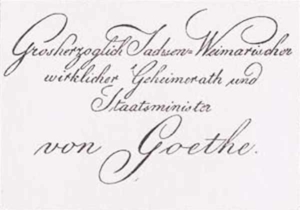 Grosherzoglich Sachsen-Weimarischer
wirklicher Geheimerath und
Staatsminister
von Goethe.